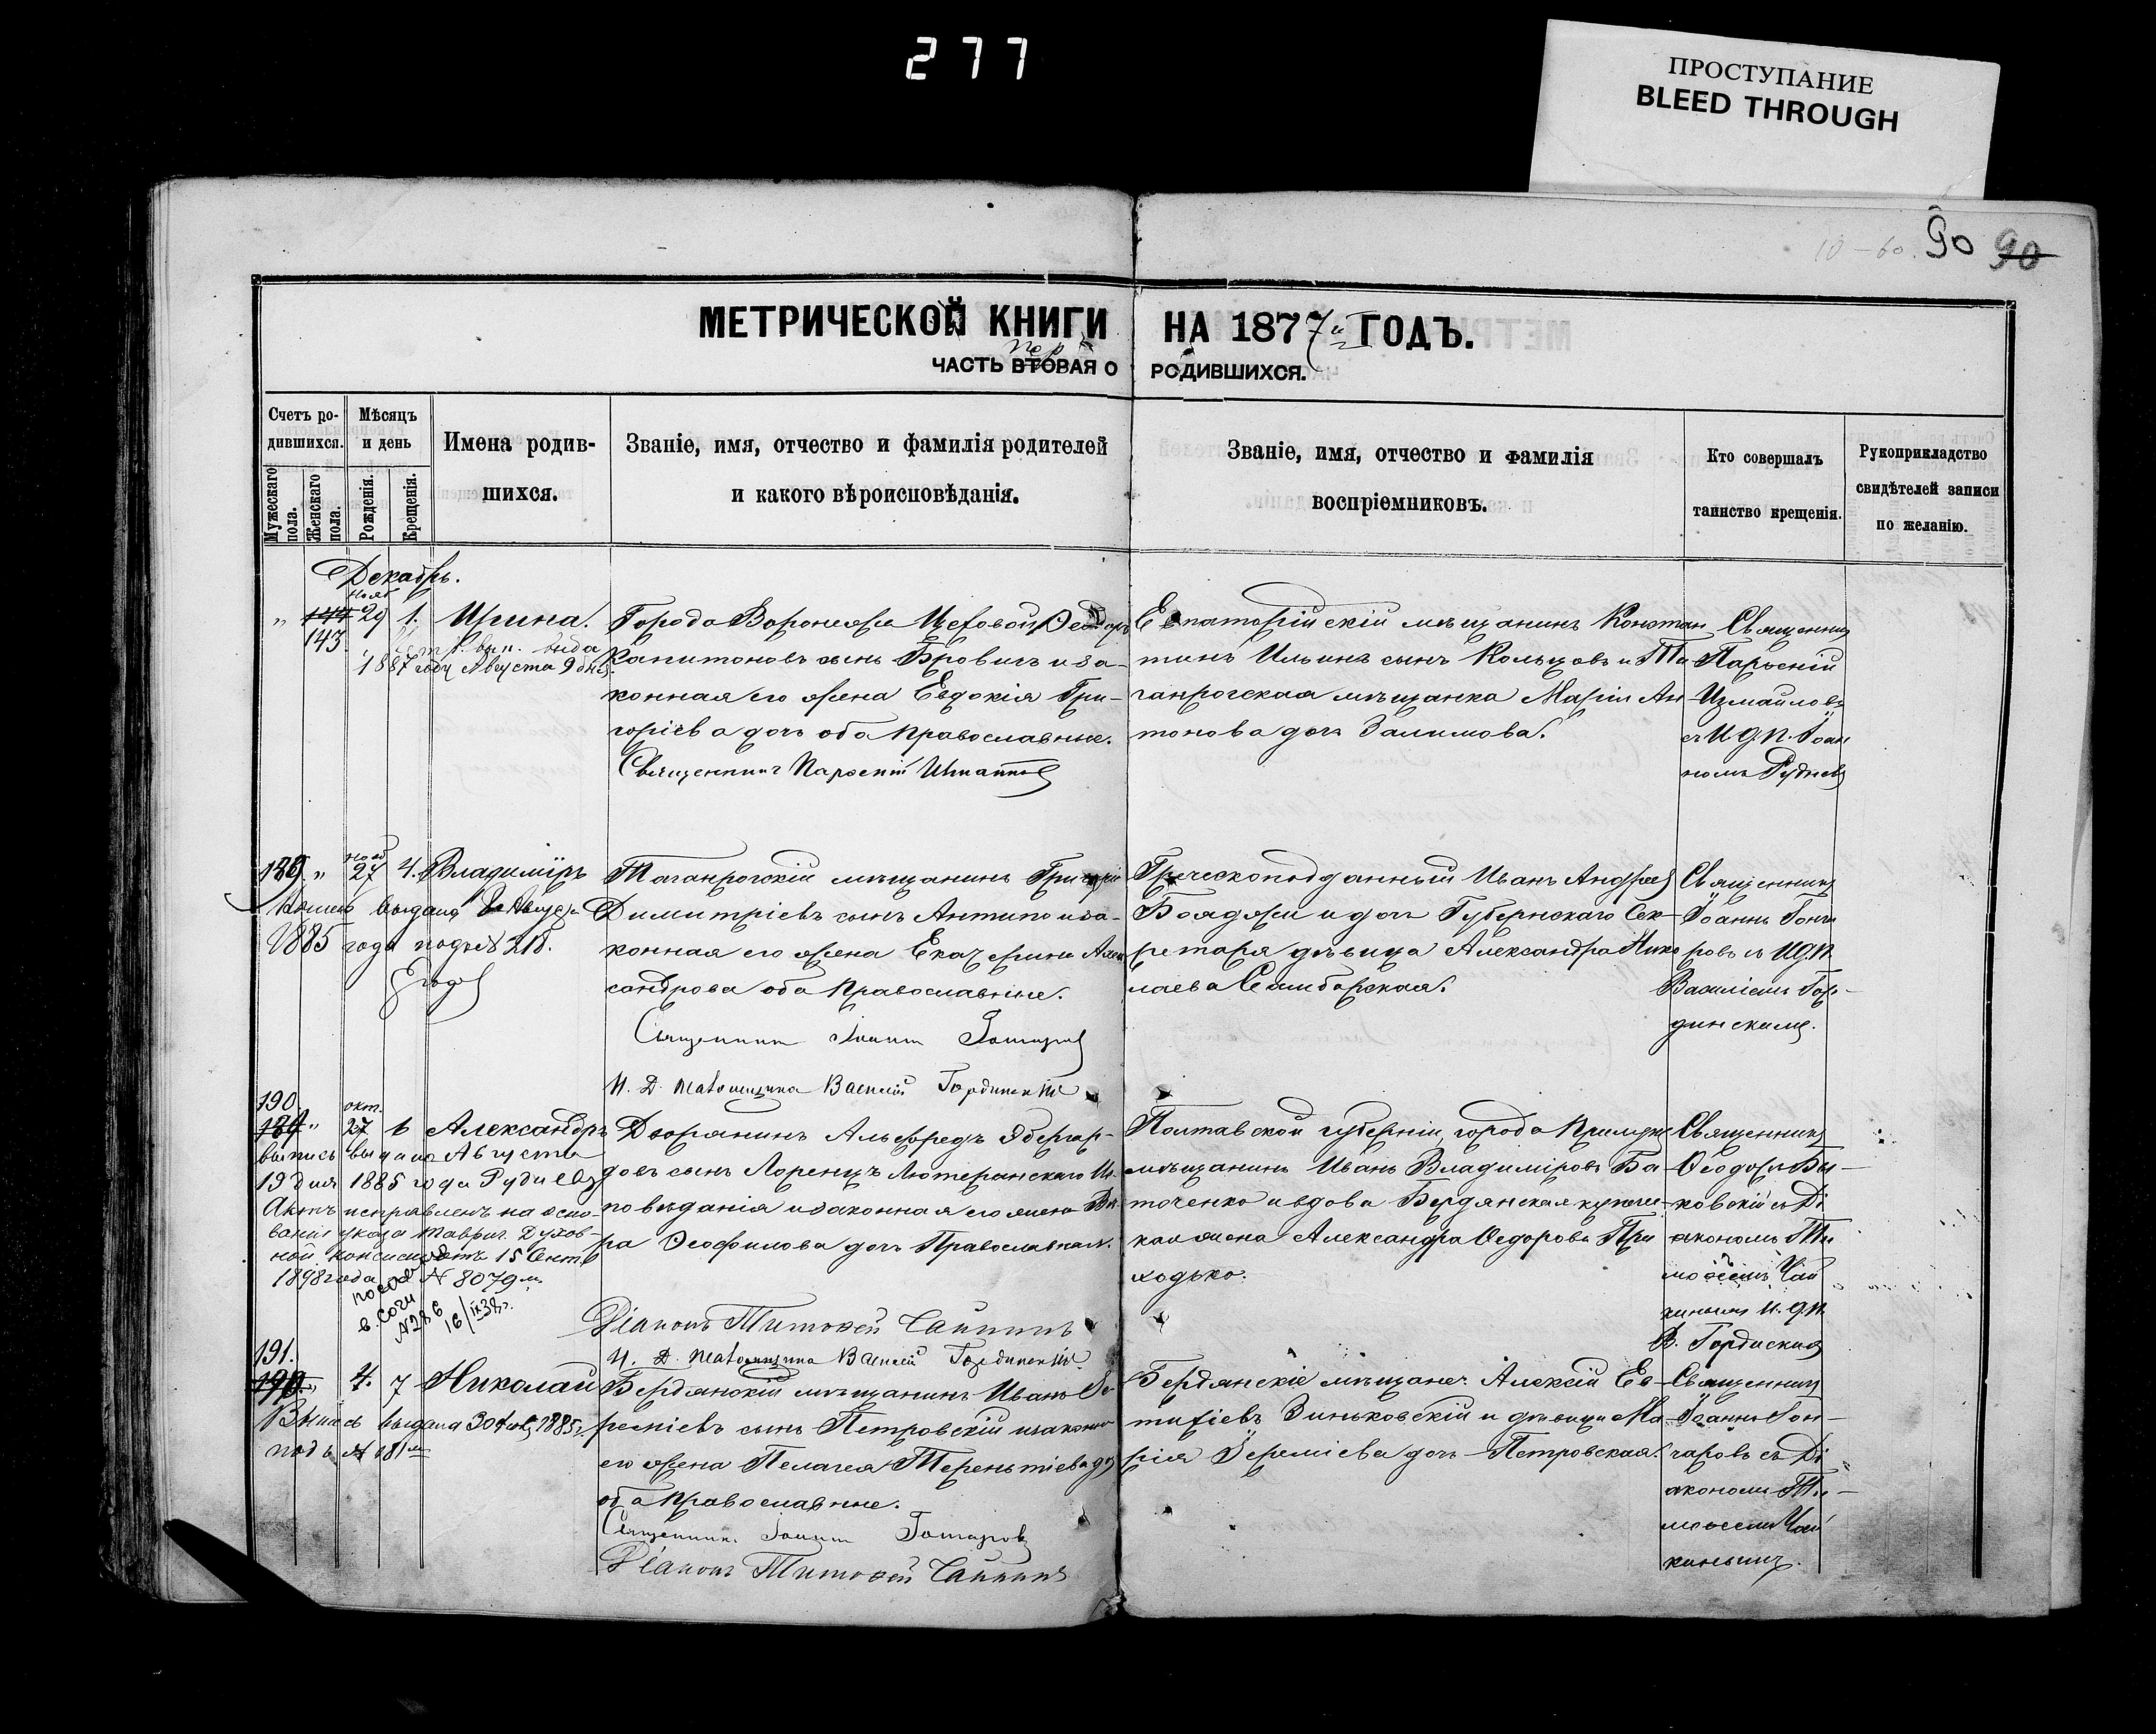 277
ПРОСТУПАНИЕ
BLEED THROUGH
90 90
МЕТРИЧЕСКОЙ КНИГИ НА 1877й ГОДЪ.
ЧАСТЬ ВТОРАЯ О РОДИВШИХСЯ.
пер
Счетъ родившихся.
Мужескаго пола.
Женскаго пола.
Мѣсяцъ и день
Рожденія.
Крещенія.
Имена родив-
шихся.
Званіе, имя, отчество и фамилія родителей
и какого вѣроисповѣданія.
Званіе, имя, отчество и фамилія
воспріемниковъ.
Кто совершалъ
таинство крещенія.
Рукоприкладство
свидѣтелей записи
по желанію.
Декабрь.
Нояб
„ 144 29 1. Ирина.
143
1887 году Августа 9 дня.
Города Воронежа Цеховой Феодоръ
Капитоновъ сынъ Бровичъ и за-
конная его жена Евдокія Гри-
горіева дочь оба Православные.
Священникъ
Евпаторійскій мѣщанинъ Констан
тинъ Ильинъ сынъ Кольцовъ и Та
ганрогская мѣщанка Марія Ан-
тонова дочь Залимова.
Священникъ
Измайловъ
съ И.д.п. Іоан
номъ Рудневъ
нояб
189 „ 27 4. Владиміръ
выдана
1885 года подъ № 218.
Таганрогскій мѣщанинъ Григорій
Димитріевъ сынъ Антипо и за-
конная его жена Екатерина Алек
сандрова оба Православные.
Священникъ Іоаннъ Гончаровъ
И. Д. Псаломщика Василій Гординскій
Греческоподданный Иванъ Андреевъ
Бояджи и дочь Губернскаго Сек-
ретаря дѣвица Александра Нико
лаева Самборская.
Священникъ
Іоаннъ Гонча
ровъ съ И.д.п.
Василіемъ Гор-
динскимъ.
190 окт.
189 „ 27 6 Александръ
выпись выдана Августа
19 дня 1885 года Рудневъ
Актъ исправленъ на осно-
ваніи указа Таврич. Духов-
ной Консисторіи отъ 15 Сент
1898 года за № 8079м
в. Сочи
№ 286
16/IX 38 г.
Дворянинъ Альфредъ Эбергар-
довъ сынъ Лоренцъ Лютеранскаго Ис-
повѣданія и законная его жена Вѣ-
ра Феофилова дочь Православная.
Діаконъ Тимофей Чайкинъ
И. Д. Псаломщика Василій Гординскій
Полтавской губерніи, города Прилуки
мѣщанинъ Иванъ Владиміровъ Ба
точенко и вдова Бердянская купече-
кая жена Александра Федорова При
ходько.
Священникъ
Феодосій Бы-
ковскій съ Ді
акономъ Ти
мофеемъ Чай
кинымъ И.д.п.
В. Гординскимъ
191.
190 „ 4. 7 Николай
Выпись выдана 30 1885 г.
подъ № 181м
Бердянскій мѣщанинъ Иванъ Іе
реміевъ сынъ Петровскій и законная
его жена Пелагея Терентіева дочь
оба Православные.
Священникъ Іоаннъ Гончаровъ
Діаконъ Тимофей Чайкинъ
Бердянскіе мѣщане: Алексій Ев-
тихіевъ Зиньковскій и дѣвица Ма
рія Іереміева дочь Петровская.
Священникъ
Іоаннъ Гон-
чаровъ съ Ді
акономъ Ти-
мофеемъ Чай
кинымъ.